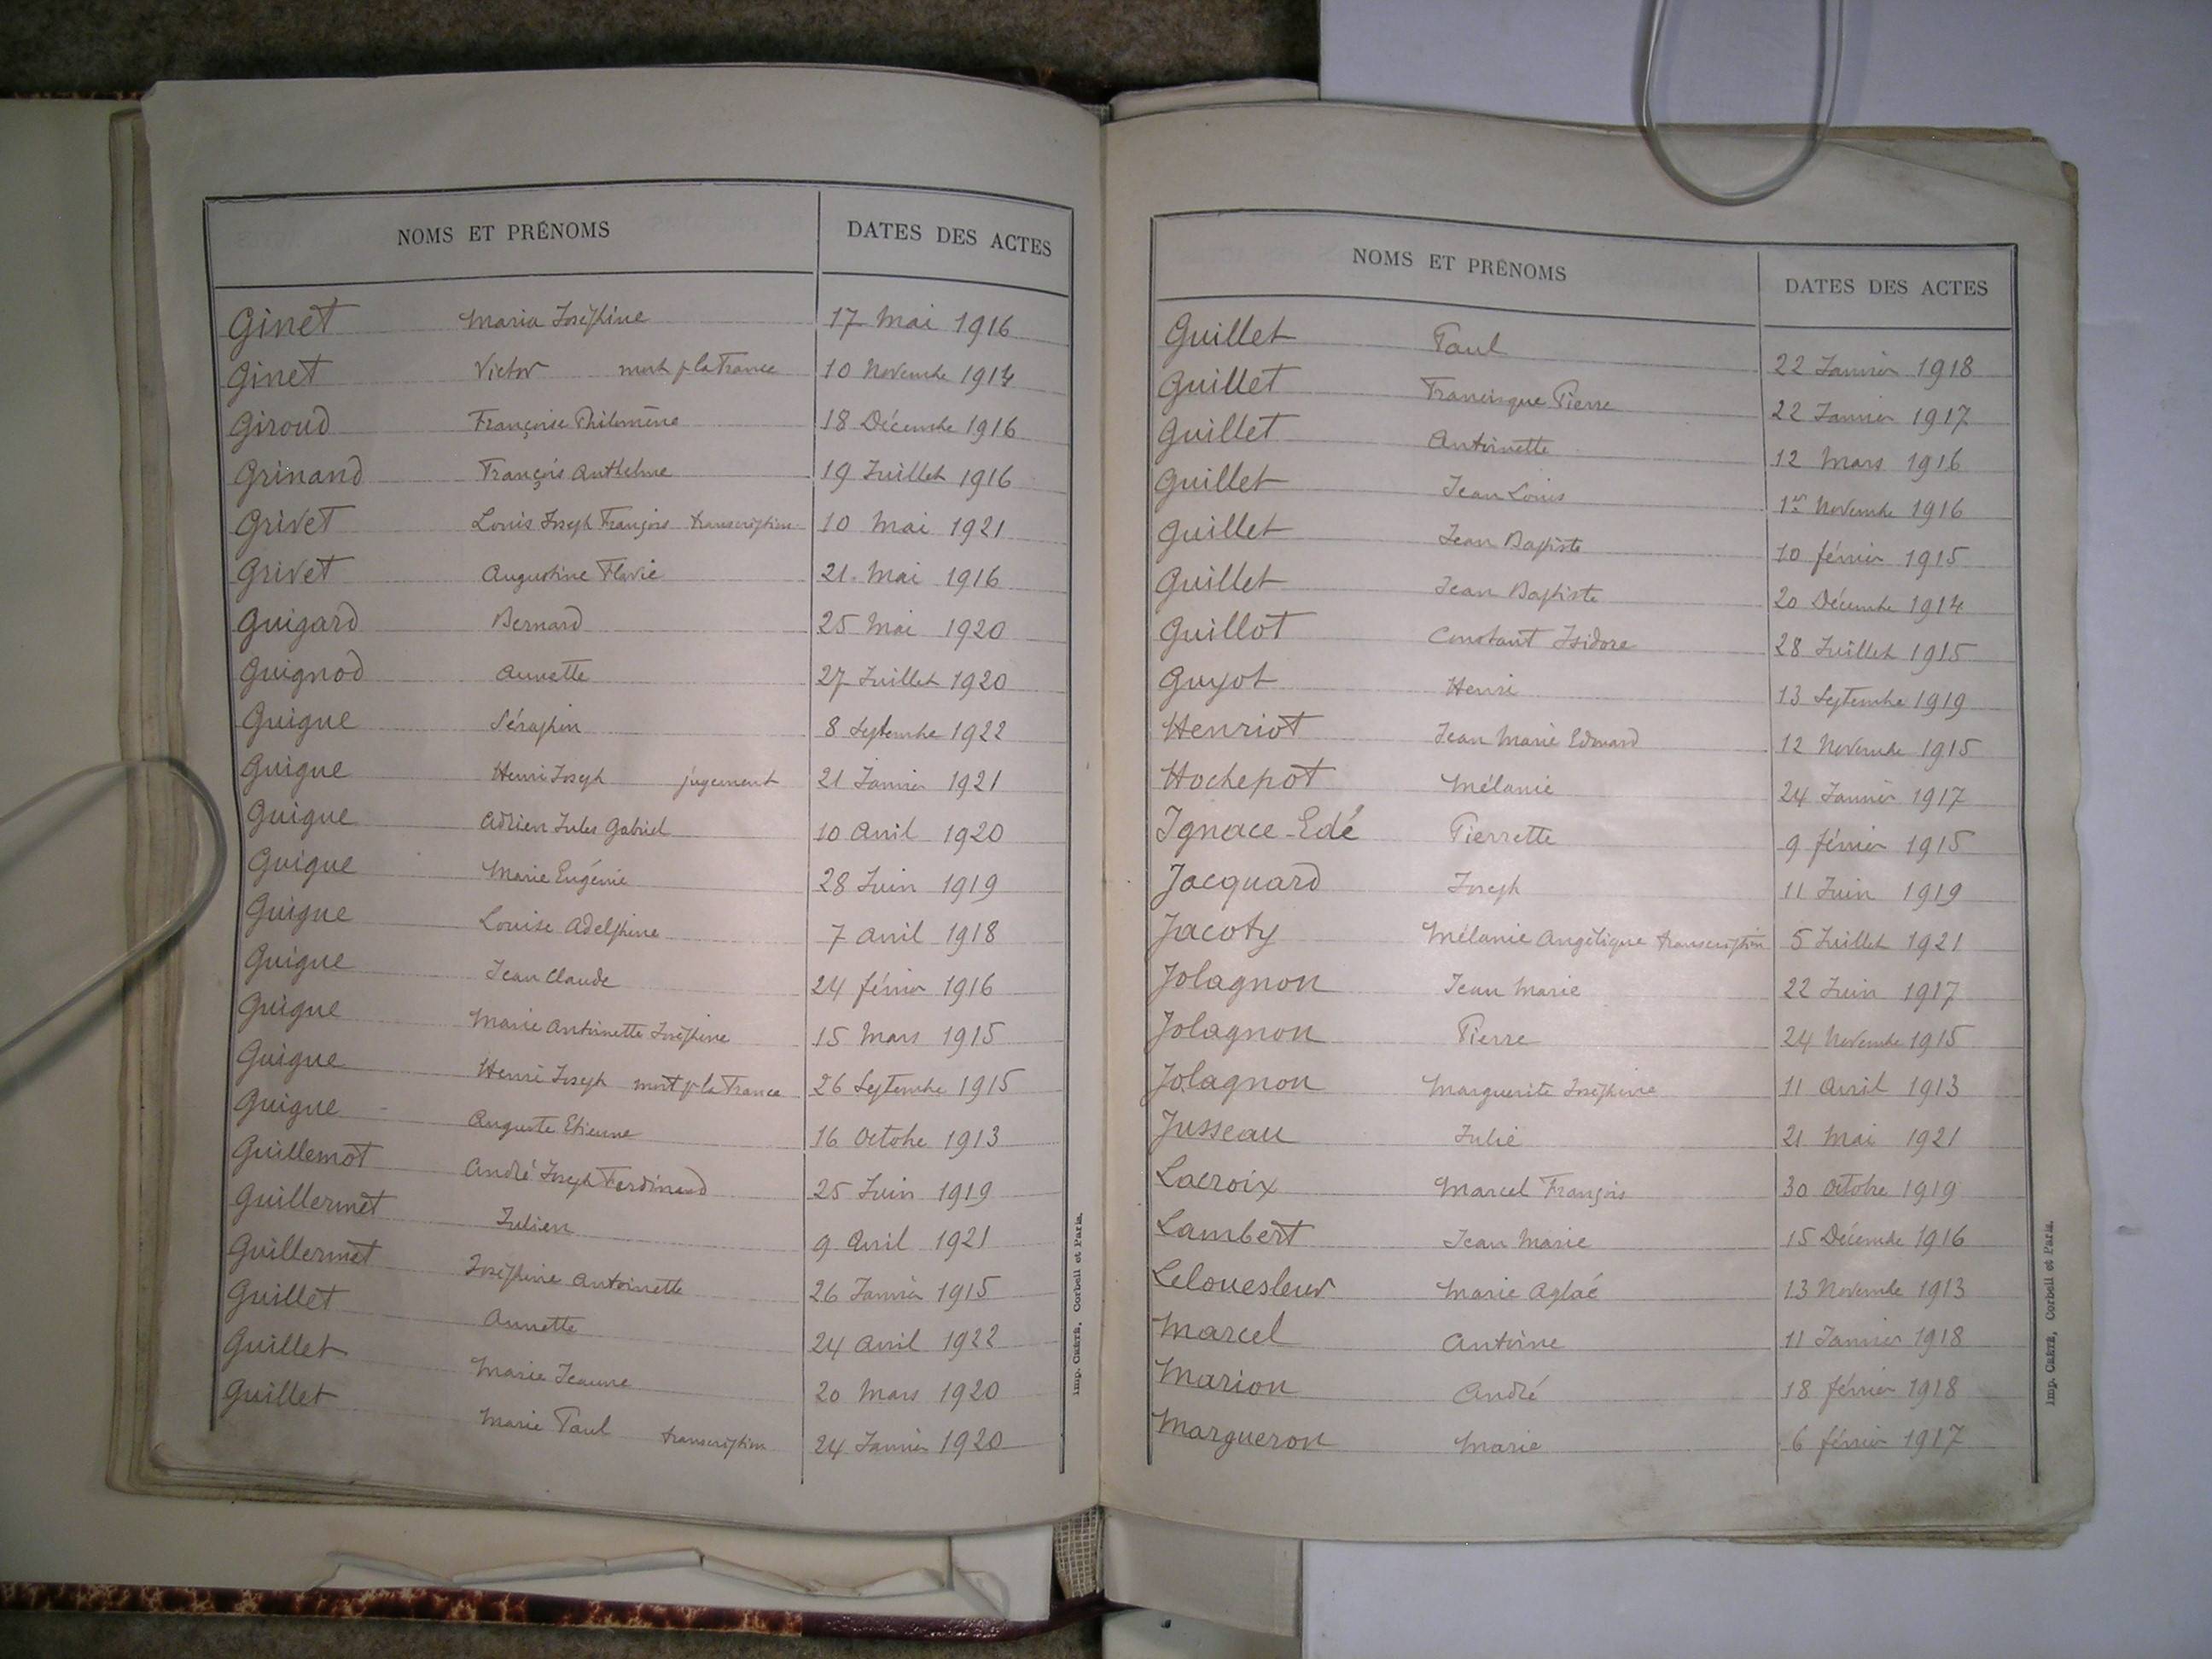 NOMS ET PRÉNOMS DATES DES ACTES
Ginet Maria Joséphine 17 Mai 1916
Ginet Victor mort p la France 10 Novembre 1914
Giroud Françoise Philomène 18 Décembre 1916
Grinand François Anthelme 19 Juillet 1916
Grivet Louis Joseph François transcription 10 Mai 1921
Grivet Augustine Flavie 21 Mai 1916
Guigard Bernard 25 Mai 1920
Guignod Annette 27 Juillet 1920
Guigue Séraphin 8 Septembre 1922
Guigue Henri Joseph jugement 21 Janvier 1921
Guigue Adrien Jules Gabriel 10 Avril 1920
Guigue Marie Eugénie 28 Juin 1919
Guigue Louise Adelphine 7 Avril 1918
Guigue Jean Claude 24 février 1916
Guigue Marie Antoinette Joséphine 15 Mars 1915
Guigue Henri Joseph mort p la France 26 Septembre 1915
Guigue Auguste Etienne 16 Octobre 1913
Guillemot André Joseph Ferdinand 25 Juin 1919
Guillermet Julien 9 Avril 1921
Guillermet Joséphine Antoinette 26 Janvier 1915
Guillet Annette 24 Avril 1922
Guillet Marie Jeanne 20 Mars 1920
Guillet Marie Paul transcription 24 Janvier 1920
Imp. CRÉTÉ, Corbeil et Paris.
NOMS ET PRÉNOMS DATES DES ACTES
Guillet Paul 22 Janvier 1918
Guillet Francisque Pierre 22 Janvier 1917
Guillet Antoinette 12 Mars 1916
Guillet Jean Louis 1er Novembre 1916
Guillet Jean Baptiste 10 février 1915
Guillet Jean Baptiste 20 Décembre 1914
Guillot Constant Isidore 28 Juillet 1915
Guyot Henri 13 Septembre 1919
Henriot Jean Marie Edouard 12 Novembre 1915
Hochepot Mélanie 24 Janvier 1917
Ignace-Edé Pierrette 9 février 1915
Jacquard Joseph 11 Juin 1919
Jacoty Mélanie Angélique transcription 5 Juillet 1921
Jolagnon Jean Marie 22 Juin 1917
Jolagnon Pierre 24 Novembre 1915
Jolagnon Marguerite Joséphine 11 Avril 1913
Jusseau Julie 21 Mai 1921
Lacroix Marcel François 30 Octobre 1919
Lambert Jean Marie 15 Décembre 1916
Lelouesleur Marie Aglaé 13 Novembre 1913
Marcel Antoine 11 Janvier 1918
Marion André 18 février 1918
Margueron Marie 6 février 1917
Imp. CRÉTÉ, Corbeil et Paris.